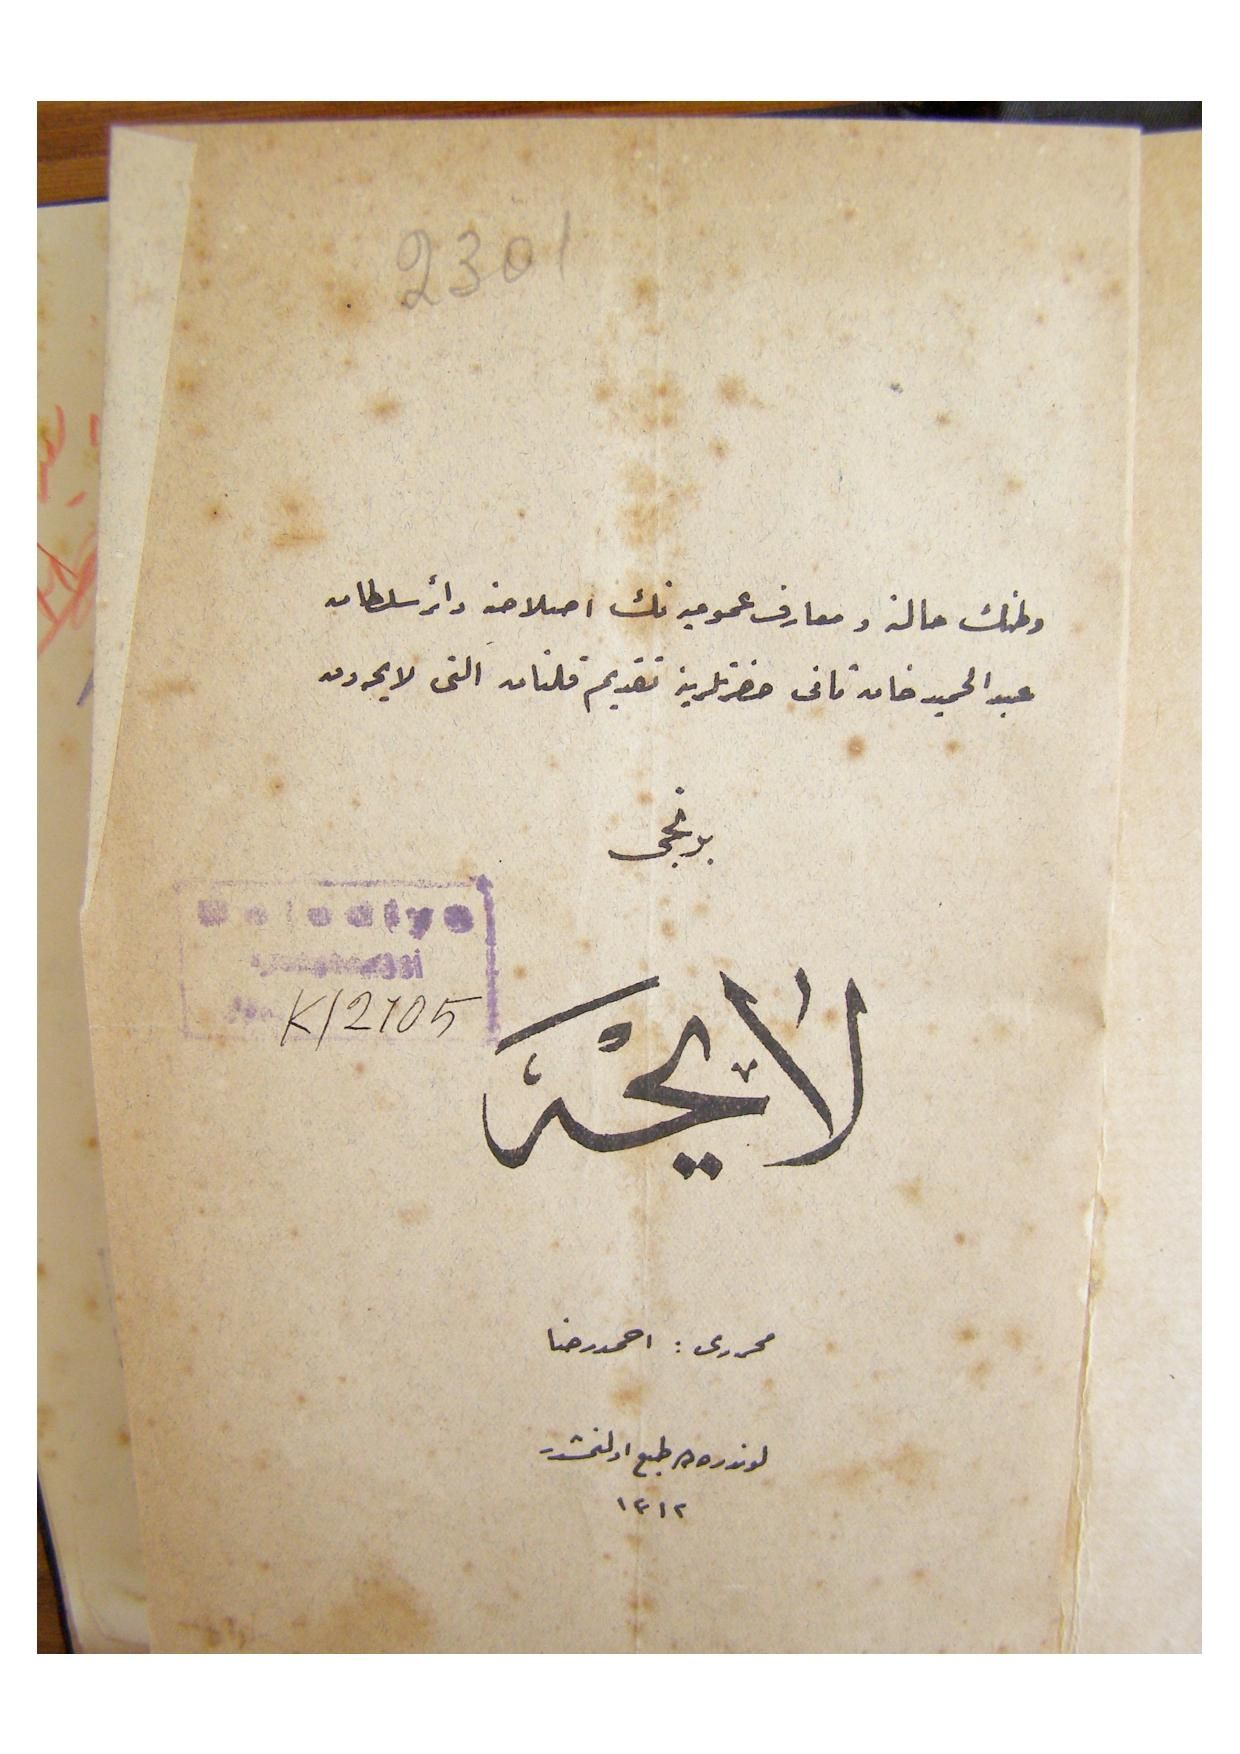 2301
وطنك حالنه و معارف عموميه نك اصلاحنه دائر سلطان
عبد الحميد خان ثانى حضرتلرينه تقديم قلنان التى لايحه دن
برنجى
Belediye
K/2105
لايحه
محررى : احمد رضا
لوندره ده طبع اولنمشدر
١٣١٢